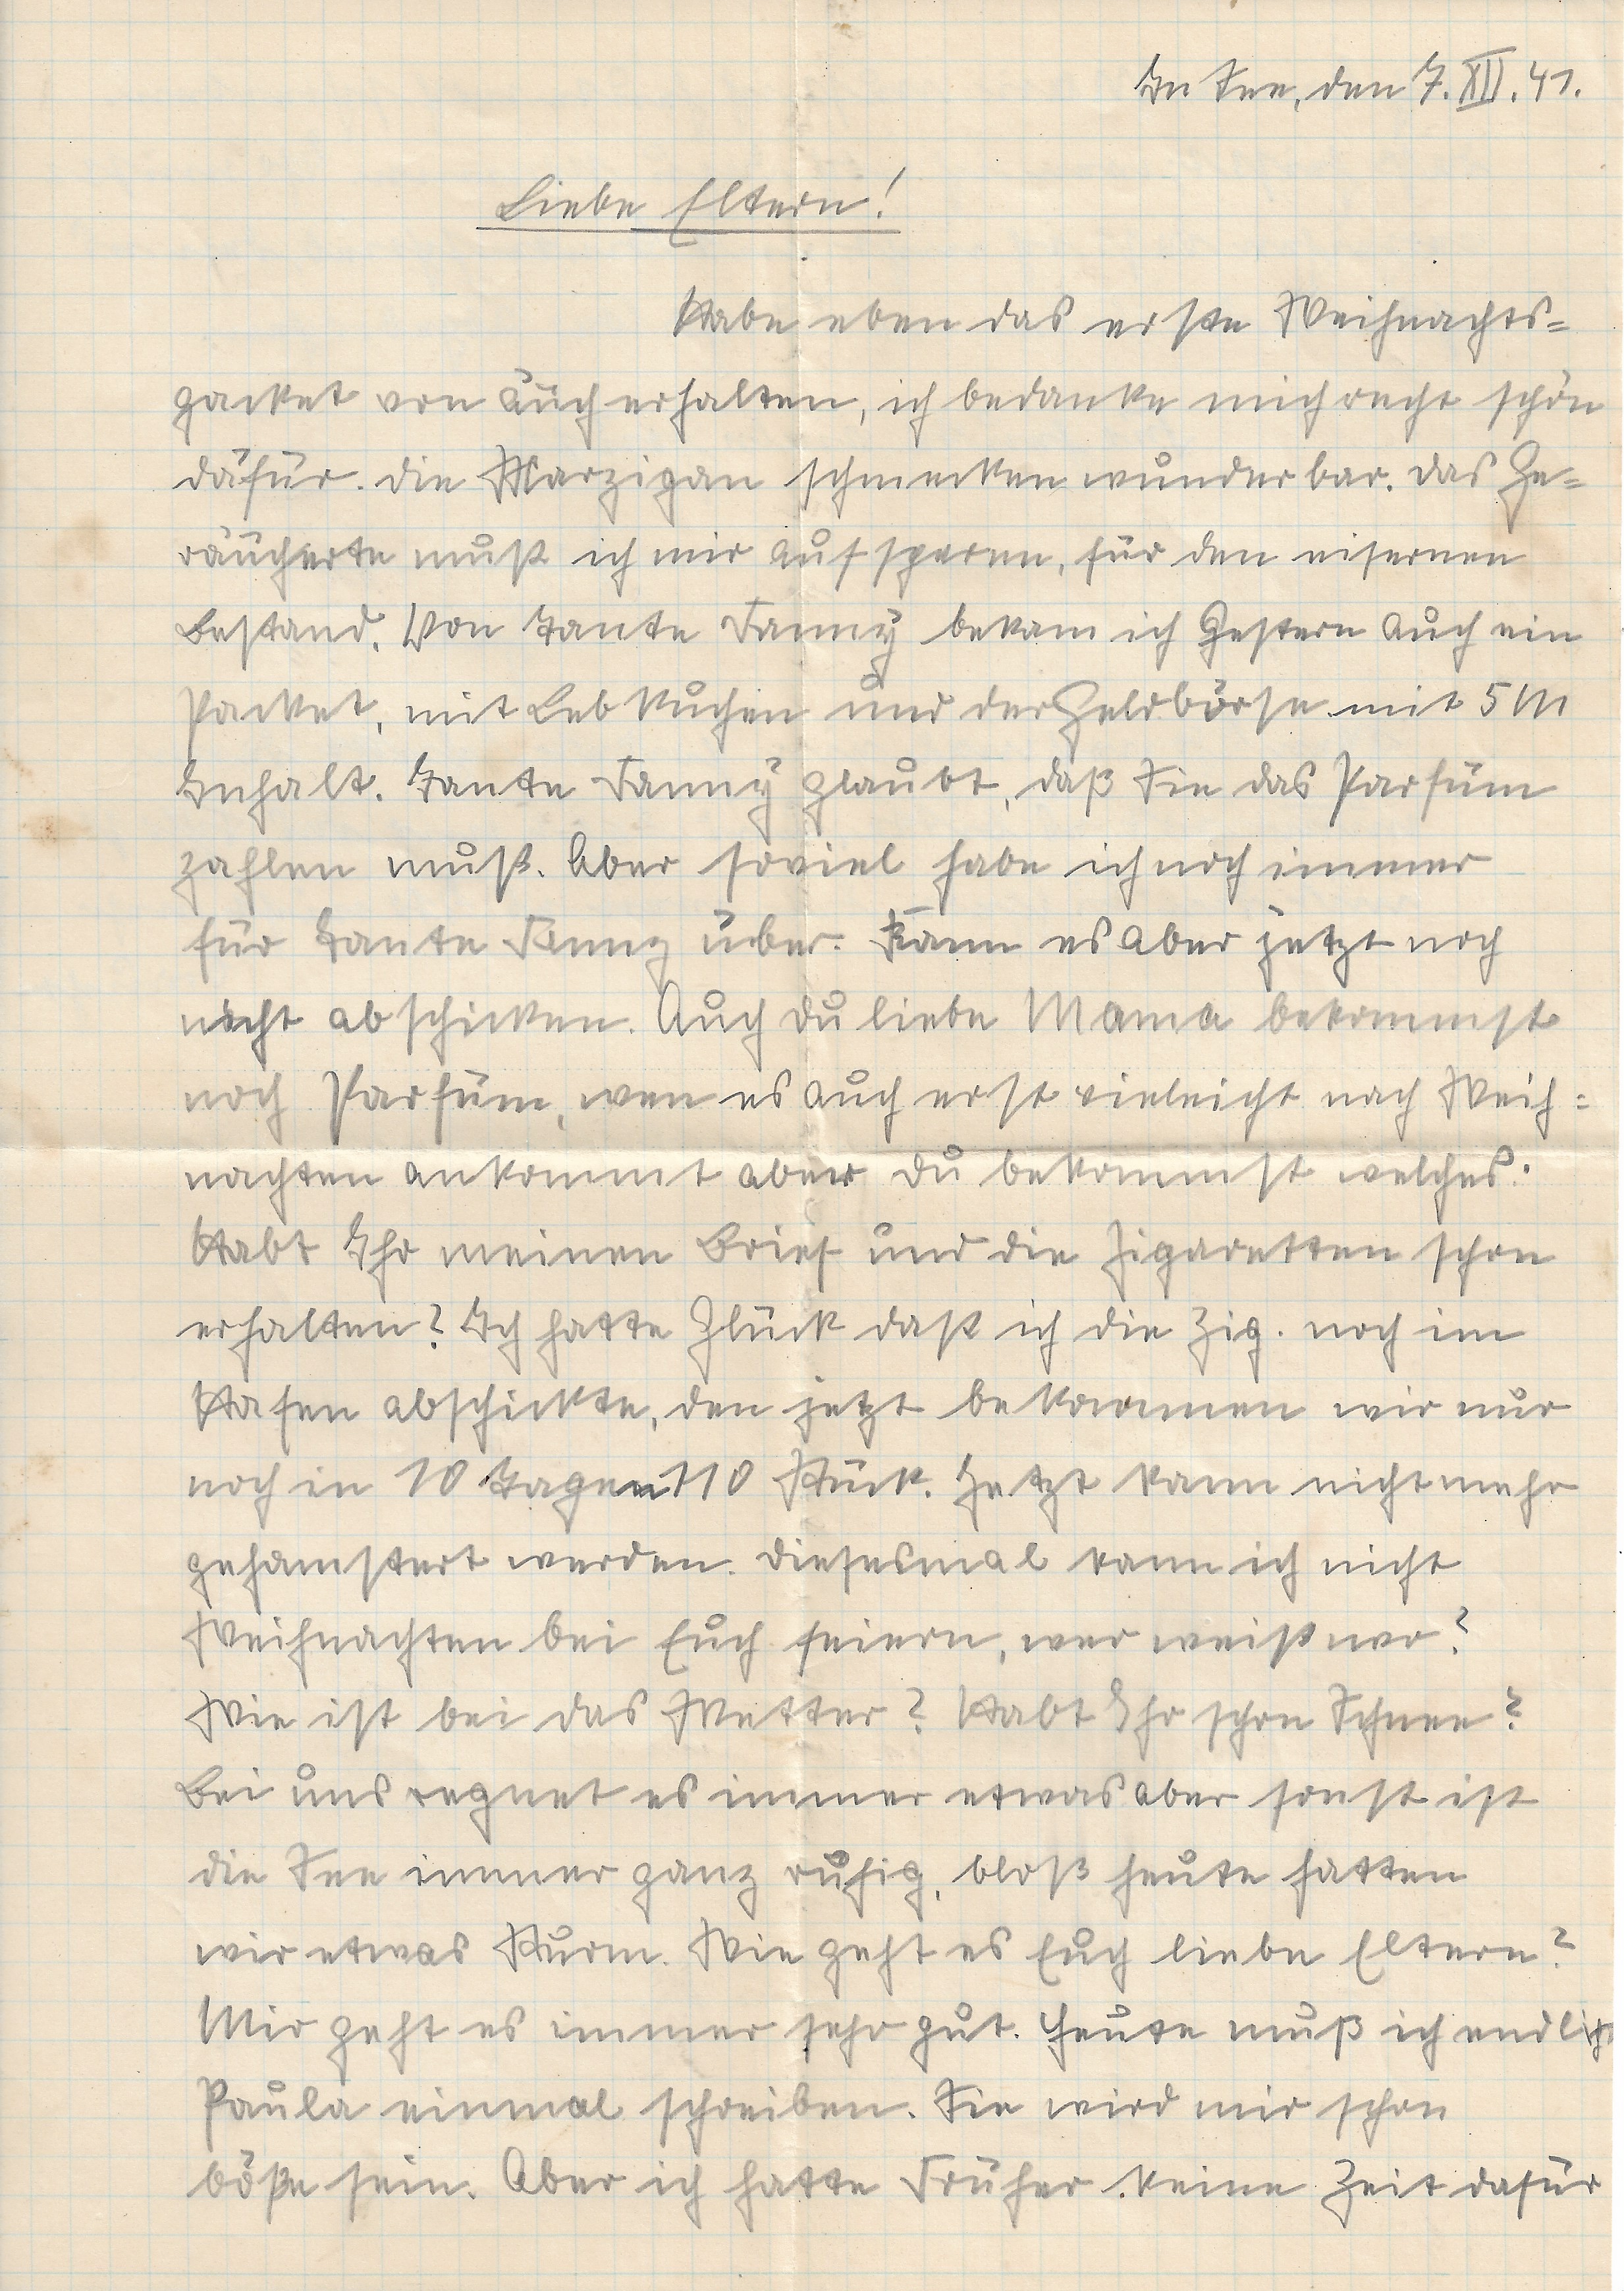 In See, den 7. XII. 41.
Liebe Eltern!
Habe eben das erste Weihnachts=
packet von Äuch erhalten, ich bedanke mich recht schön
däfür. die Marzipan schmecken wunderbar. das Ge=
räucherte muß ich mir aufsparen, für den eisernen
Bestand. Von Tante Fanny bekam ich Gestern auch ein
Packet, mit Lebkuchen und der Geldbörse mit 5 M
Inhalt. Tante Fanny glaubt, daß Sie das Parfüm
zahlen muß. Aber soviel habe ich noch immer
für Tante Fanny über. Kann es aber jetzt noch
nicht abschicken. Auch du liebe Mama bekommst
noch Parfüm, wen es auch erst vieleicht nach Weih=
nachten ankommt aber du bekommst welches.
Habt Ihr meinen Brief und die Zigaretten schon
erhalten? Ich hatte Glück daß ich die Zig. noch im
Hafen abschickte, den jetzt bekommen wir nur
noch in 10 Tagen 110 Stück. Jetzt kann nicht mehr
gehamstert werden. diesesmal kann ich nicht
Weihnachten bei Euch feiern, wer weiß wo?
Wie ist bei das Wetter? Habt Ihr schon Schnee?
Bei uns regnet es immer etwas aber sonst ist
die See immer ganz ruhig, bloß heute hatten
wir etwas Sturm. Wie geht es Euch liebe Eltern?
Mir geht es immer sehr gut. Heute muß ich endlich
Paula einmal schreiben. Sie wird mir schon
böße sein. Aber ich hatte Früher keine Zeit dafür